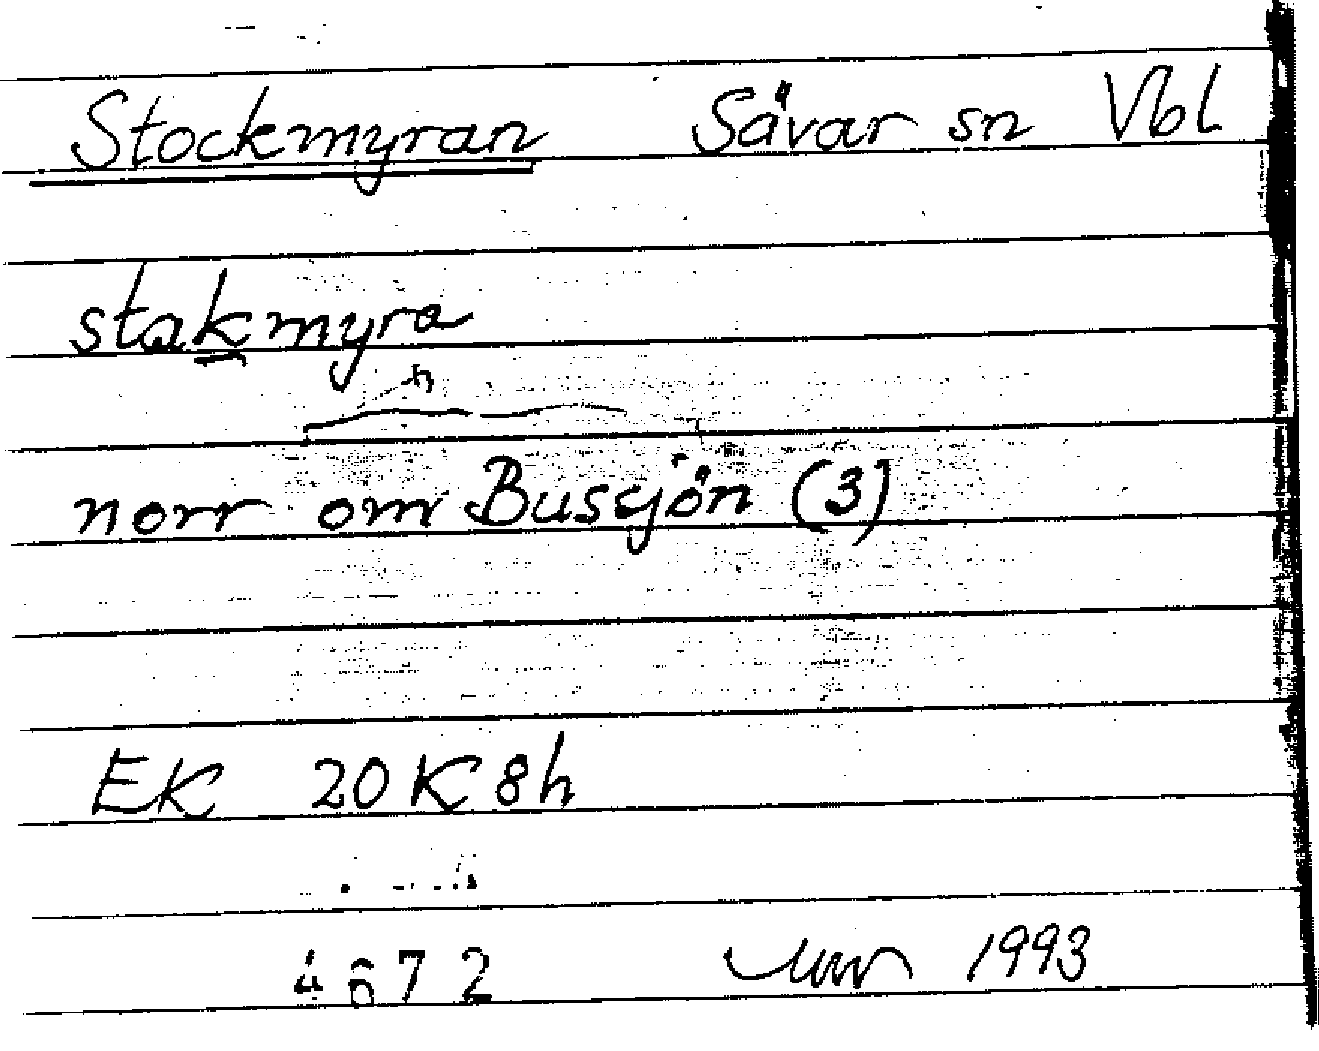 Stockmyran Sävar sn Vbl
stakmyra
norr om Bussjön (3)
EK 20K8h
4672 1993